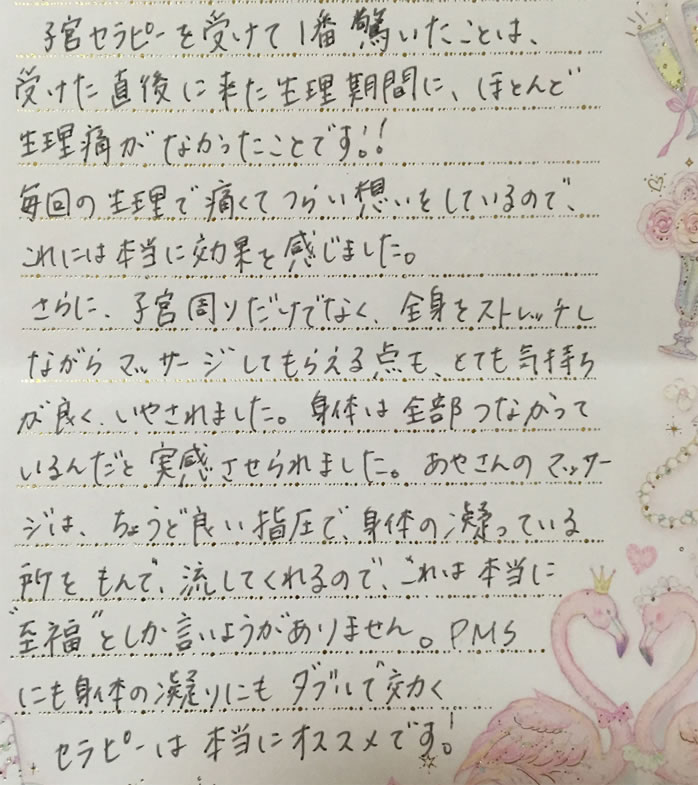 子宮セラピーを受けて1番驚いたことは、
受けた直後に来た生理期間に、ほとんど
生理痛がなかったことです!!
毎回の生理で痛くてつらい想いをしているので、
これには本当に効果を感じました。
さらに、子宮周りだけでなく、全身をストレッチし
ながらマッサージしてもらえる点も、とても気持ち
が良く、いやされました。身体は全部つながって
いるんだと実感させられました。あやさんのマッサー
ジは、ちょうど良い指圧で、身体の凝っている
所をもんで、流してくれるので、これは本当に
"至福"としか言いようがありません。PMS
にも身体の凝りにもダブルで効く
セラピーは本当にオススメです!